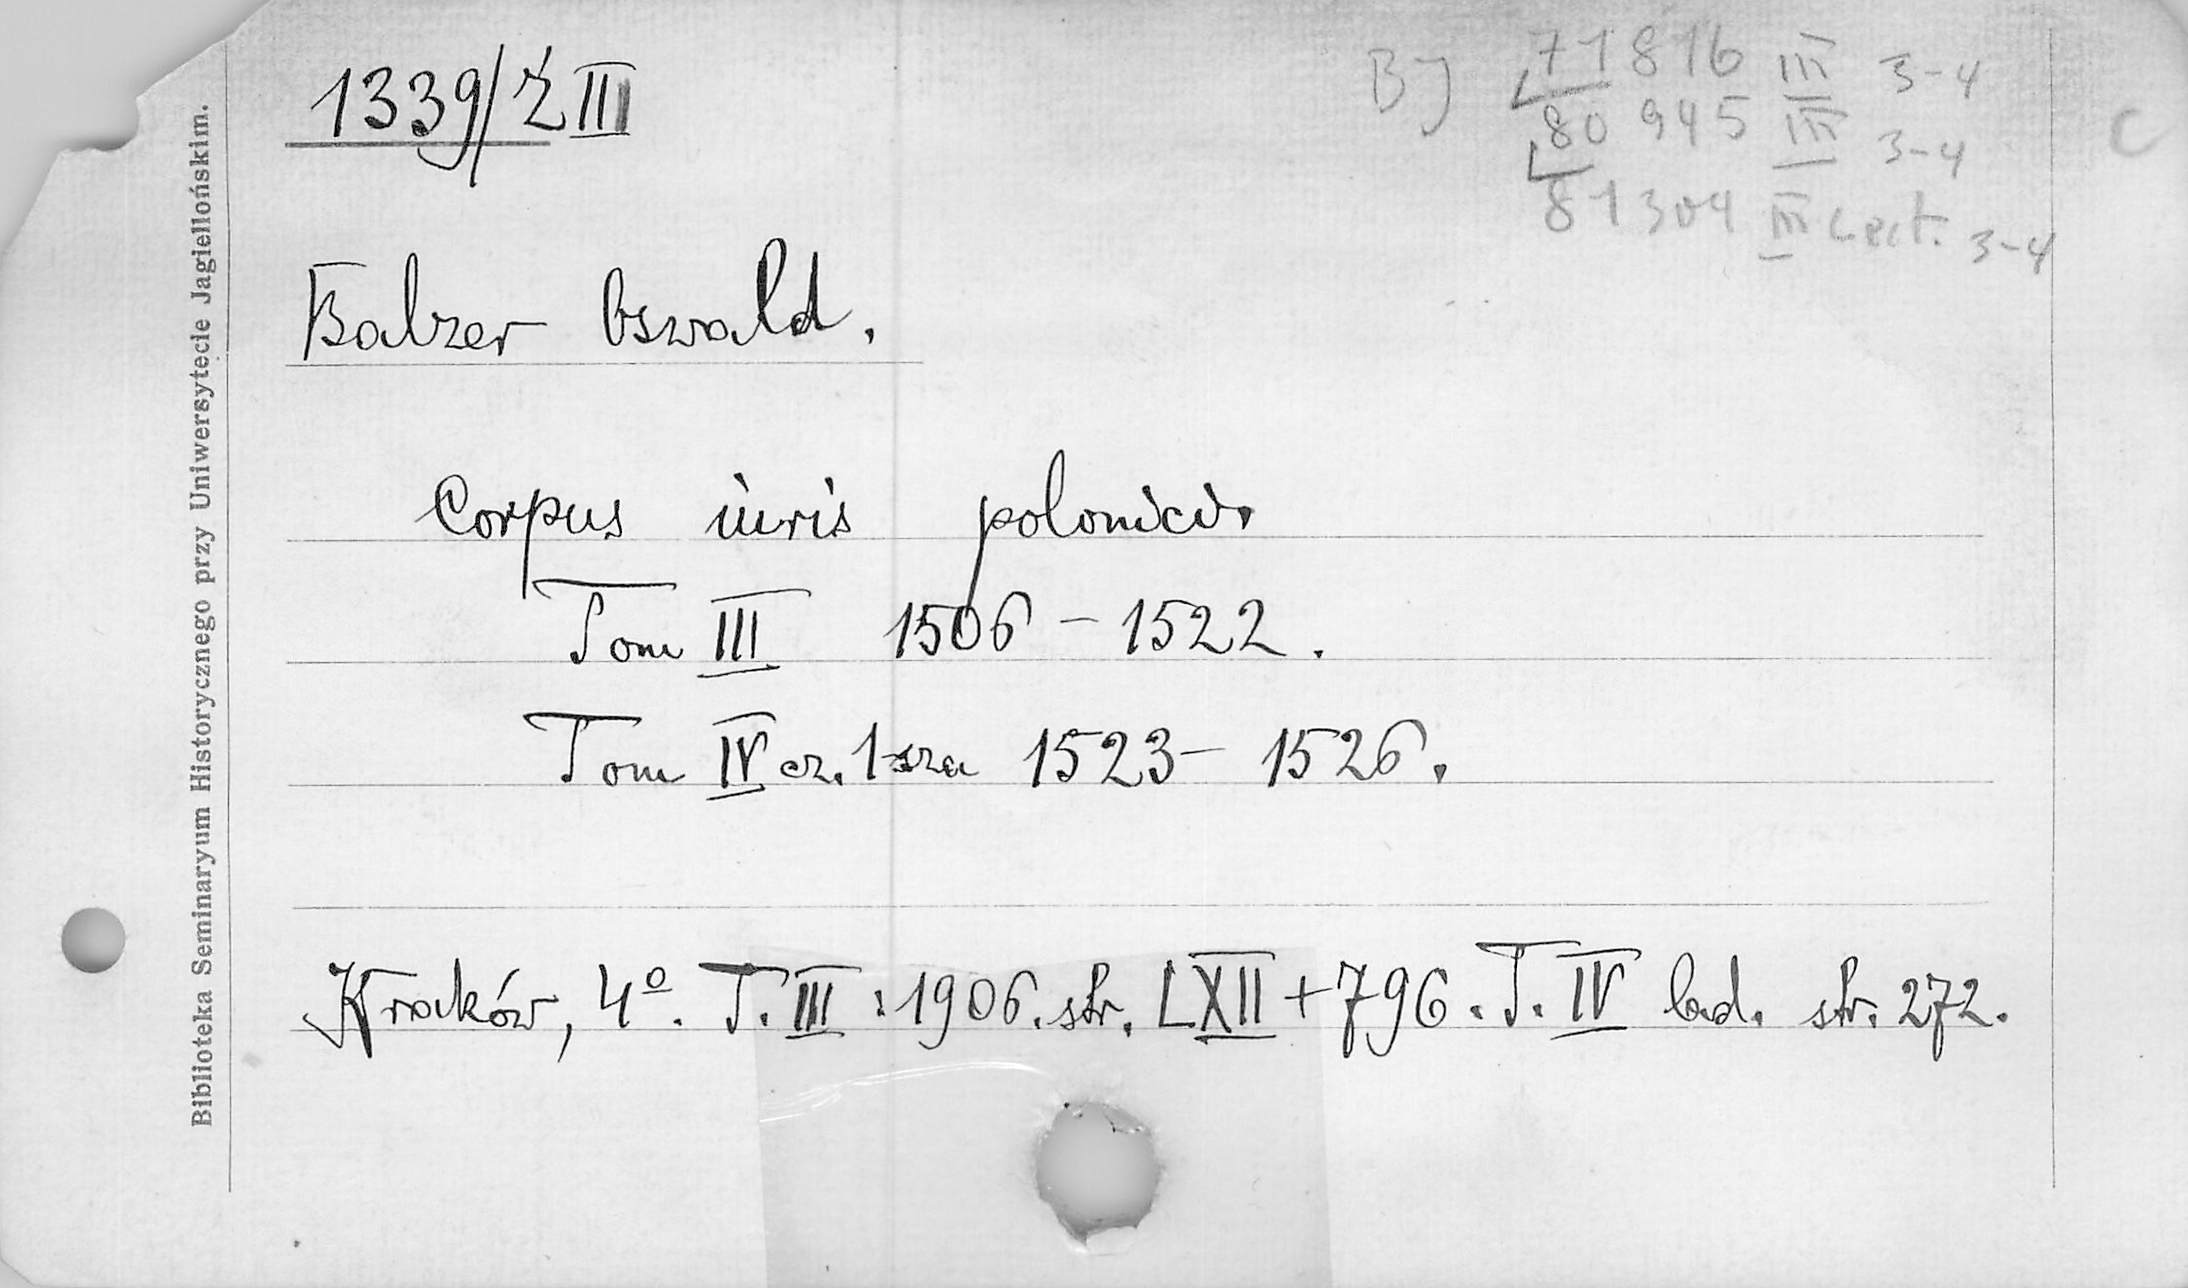 1339/Ż III
BJ 71816 III 3-4
80 945 III 3-4
81304 III Lect. 3-4
C
Balzer Oswald.
Corpus iuris polonici.
Tom III 1506 - 1522.
Tom IV cz. 1-sza 1523 - 1526.
Kraków, 4º. T. III : 1906. str. LXII + 796. T. IV b.d. str. 272.
Biblioteka Seminaryum Historycznego przy Uniwersytecie Jagiellońskim.